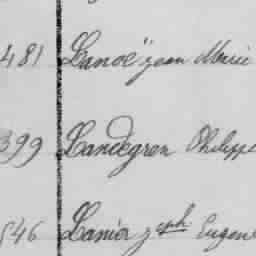 481 Lanoë Jean Marie
399 Landégren Philippe
546 Lanior Jph Eugene